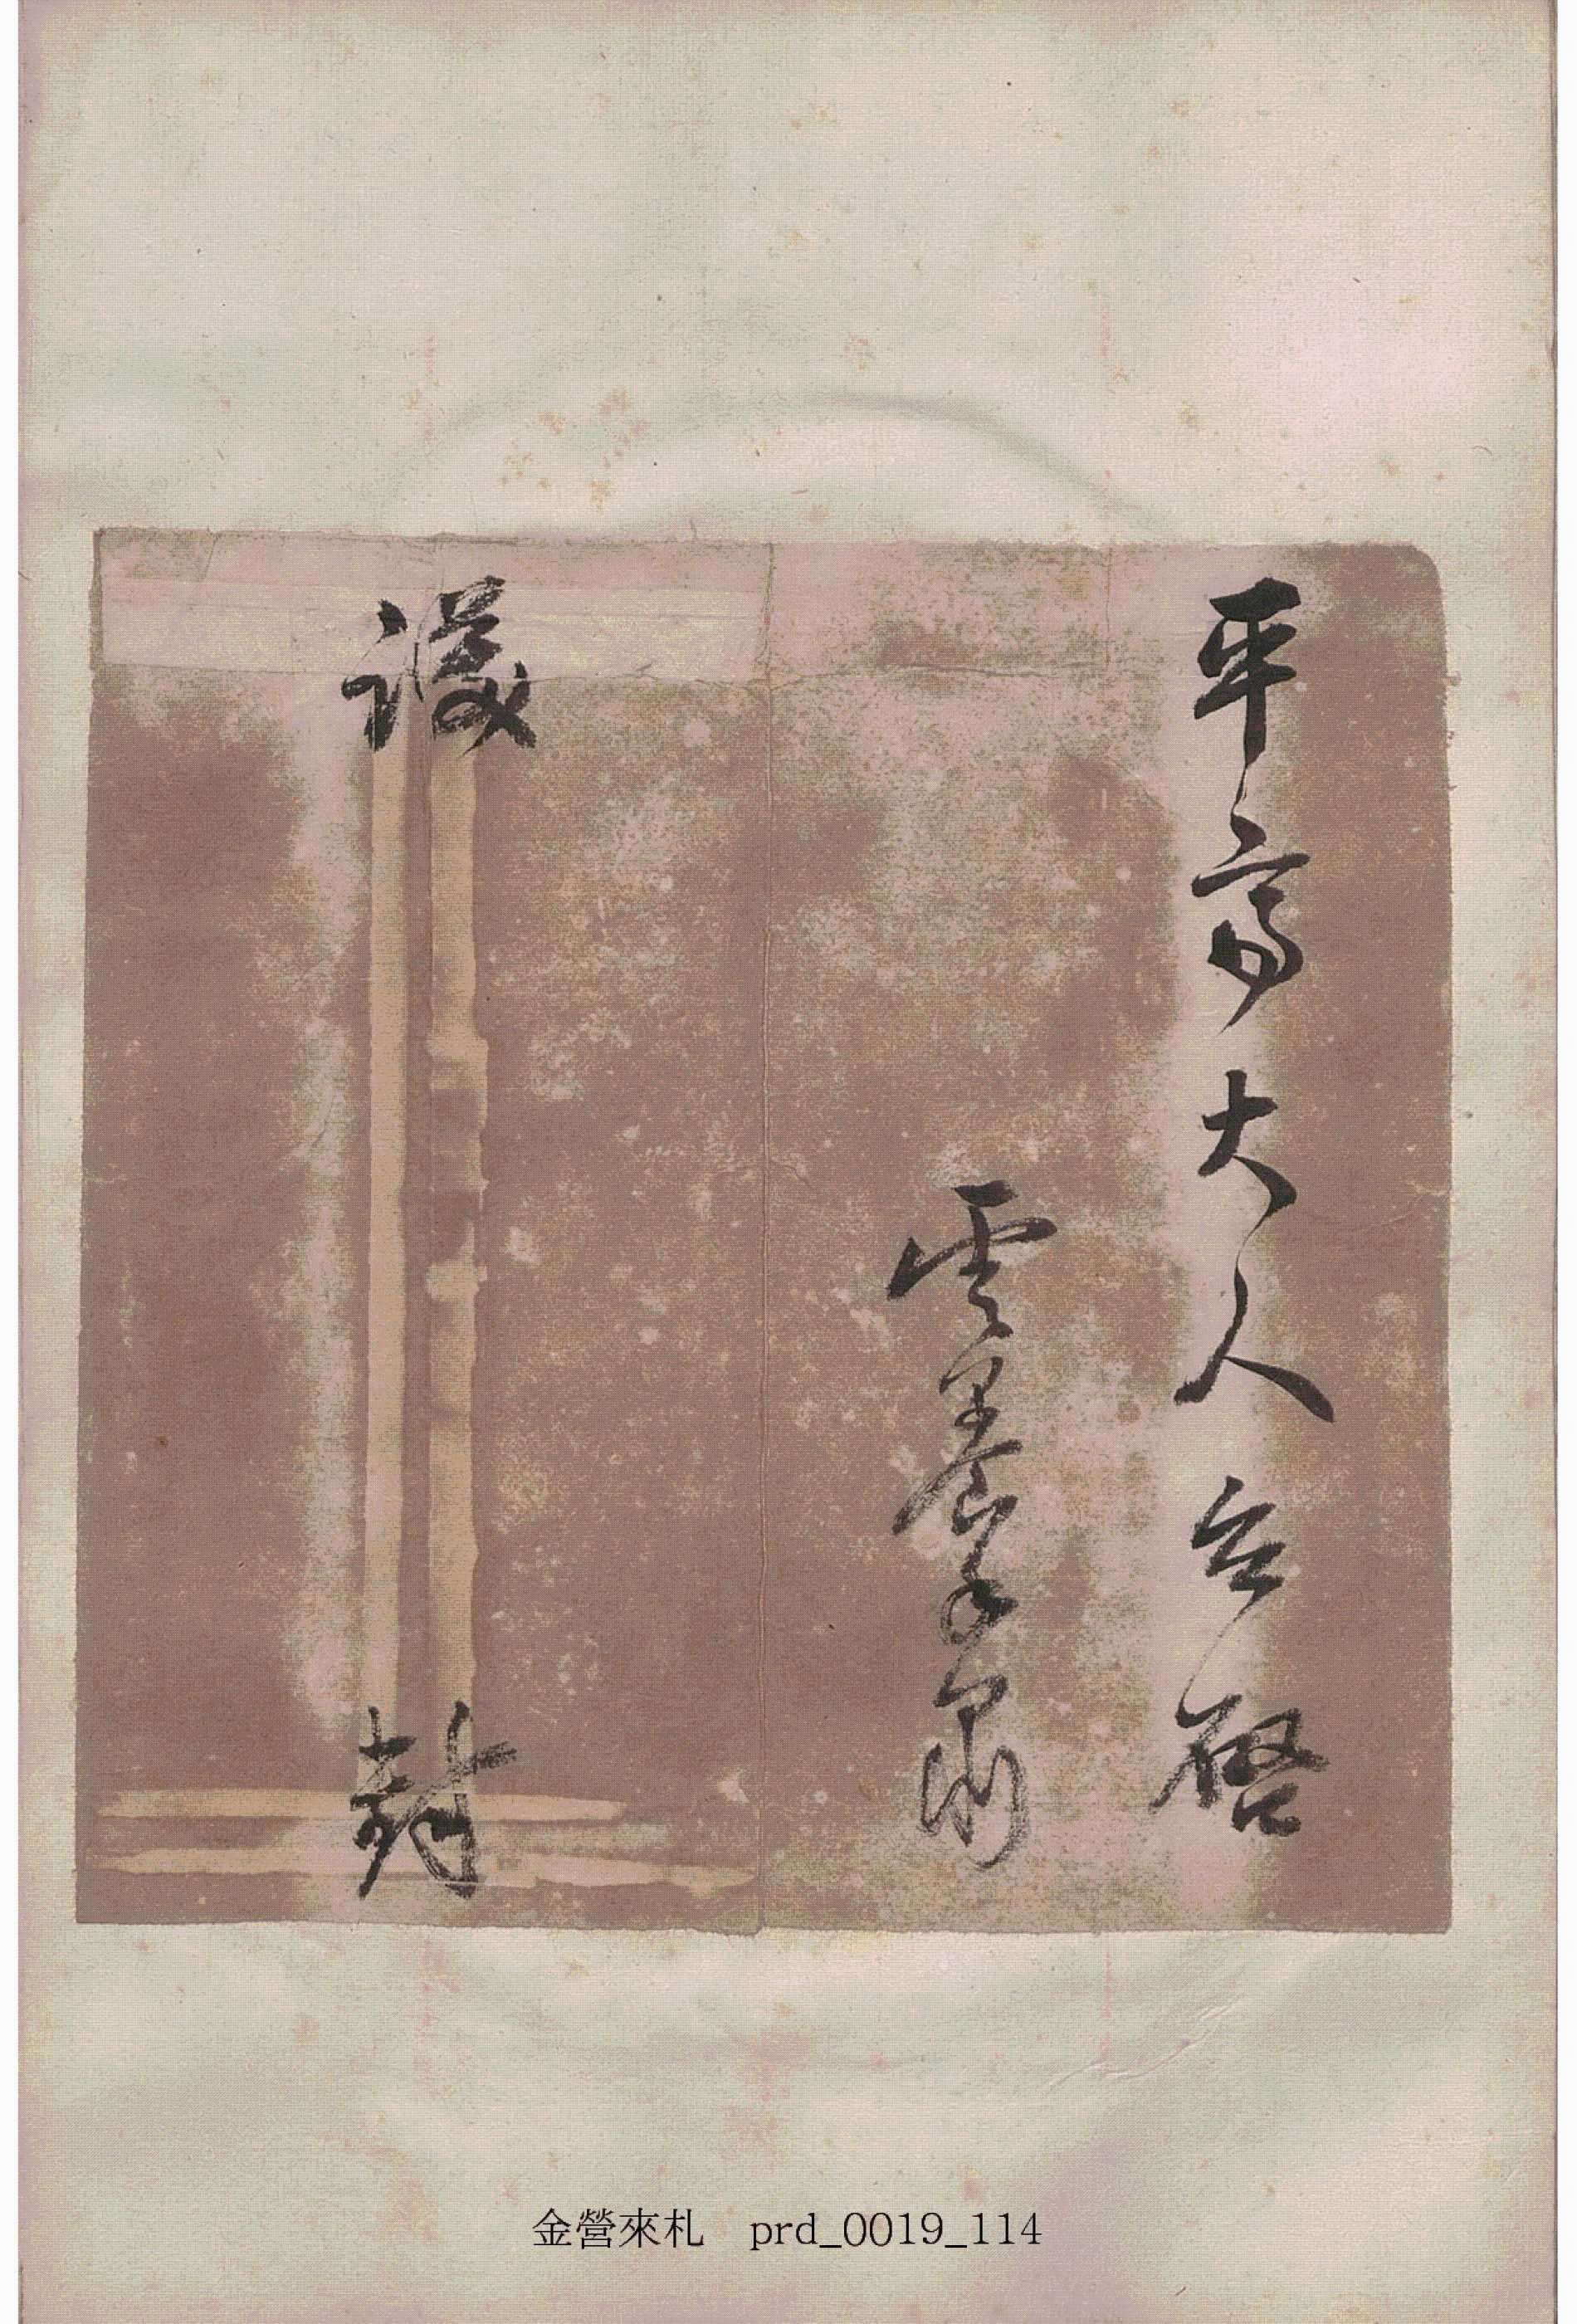 平齋大人台啓
雲手肅
護封
金營來札 prd_0019_114